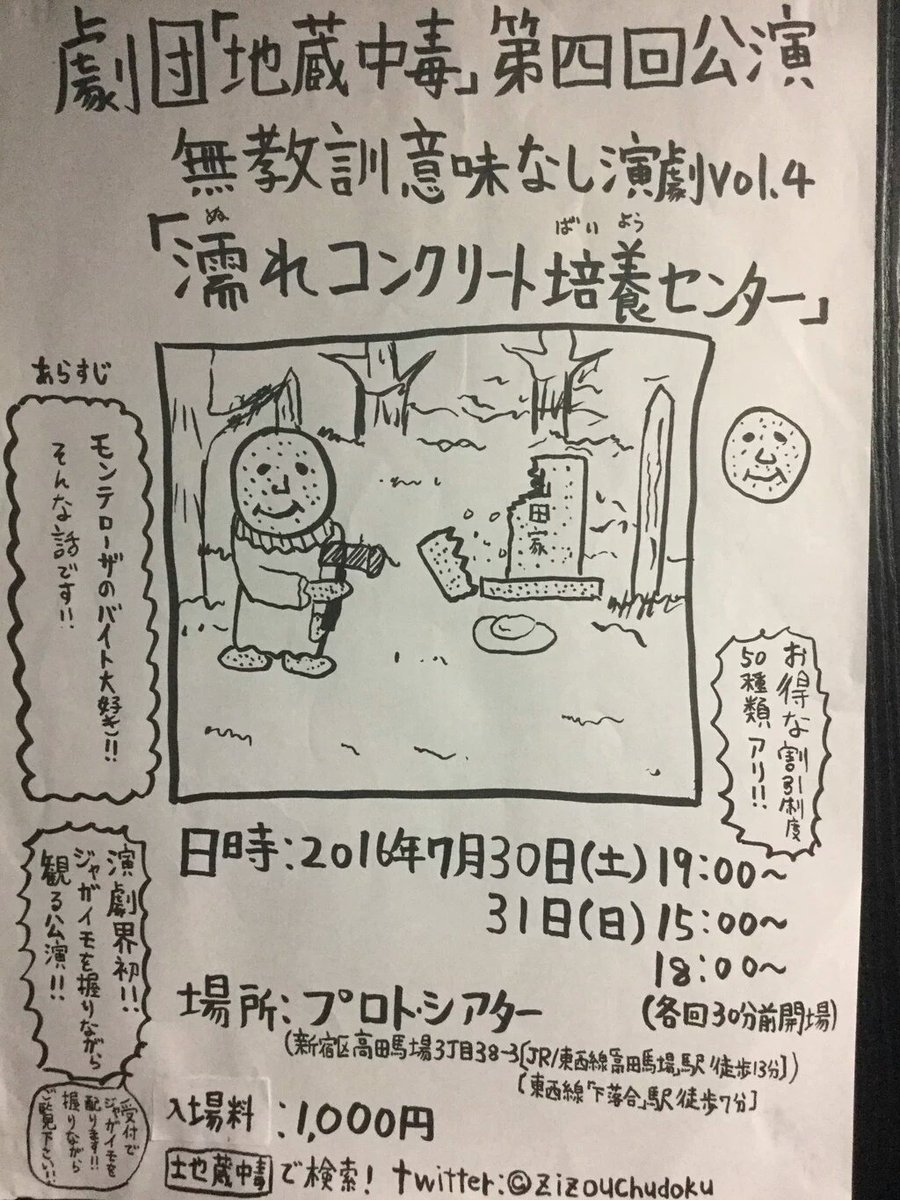 劇団「地蔵中毒」第四回公演
無教訓意味なし演劇vol.4
ぬ
ばいよう
「濡れコンクリート培養センター」
あらすじ
モンテローザのバイト大好き!!
そんな話です!!
田家
お得な割引制度
50種類アリ!!
日時:2016年7月30日(土)19:00~
31日(日)15:00~
18:00~
(各回30分前開場)
場所:プロト・シアター
(新宿区高田馬場3丁目38-3[JR/東西線「高田馬場」駅/徒歩13分])
[東西線「下落合」駅/徒歩7分]
演劇界初!!
ジャガイモを握りながら
観る公演!!
受付で
ジャガイモを
配ります!!
握りながら
ご覧下さい!!
入場料:1,000円
地蔵中毒で検索! twitter:@zizouchudoku